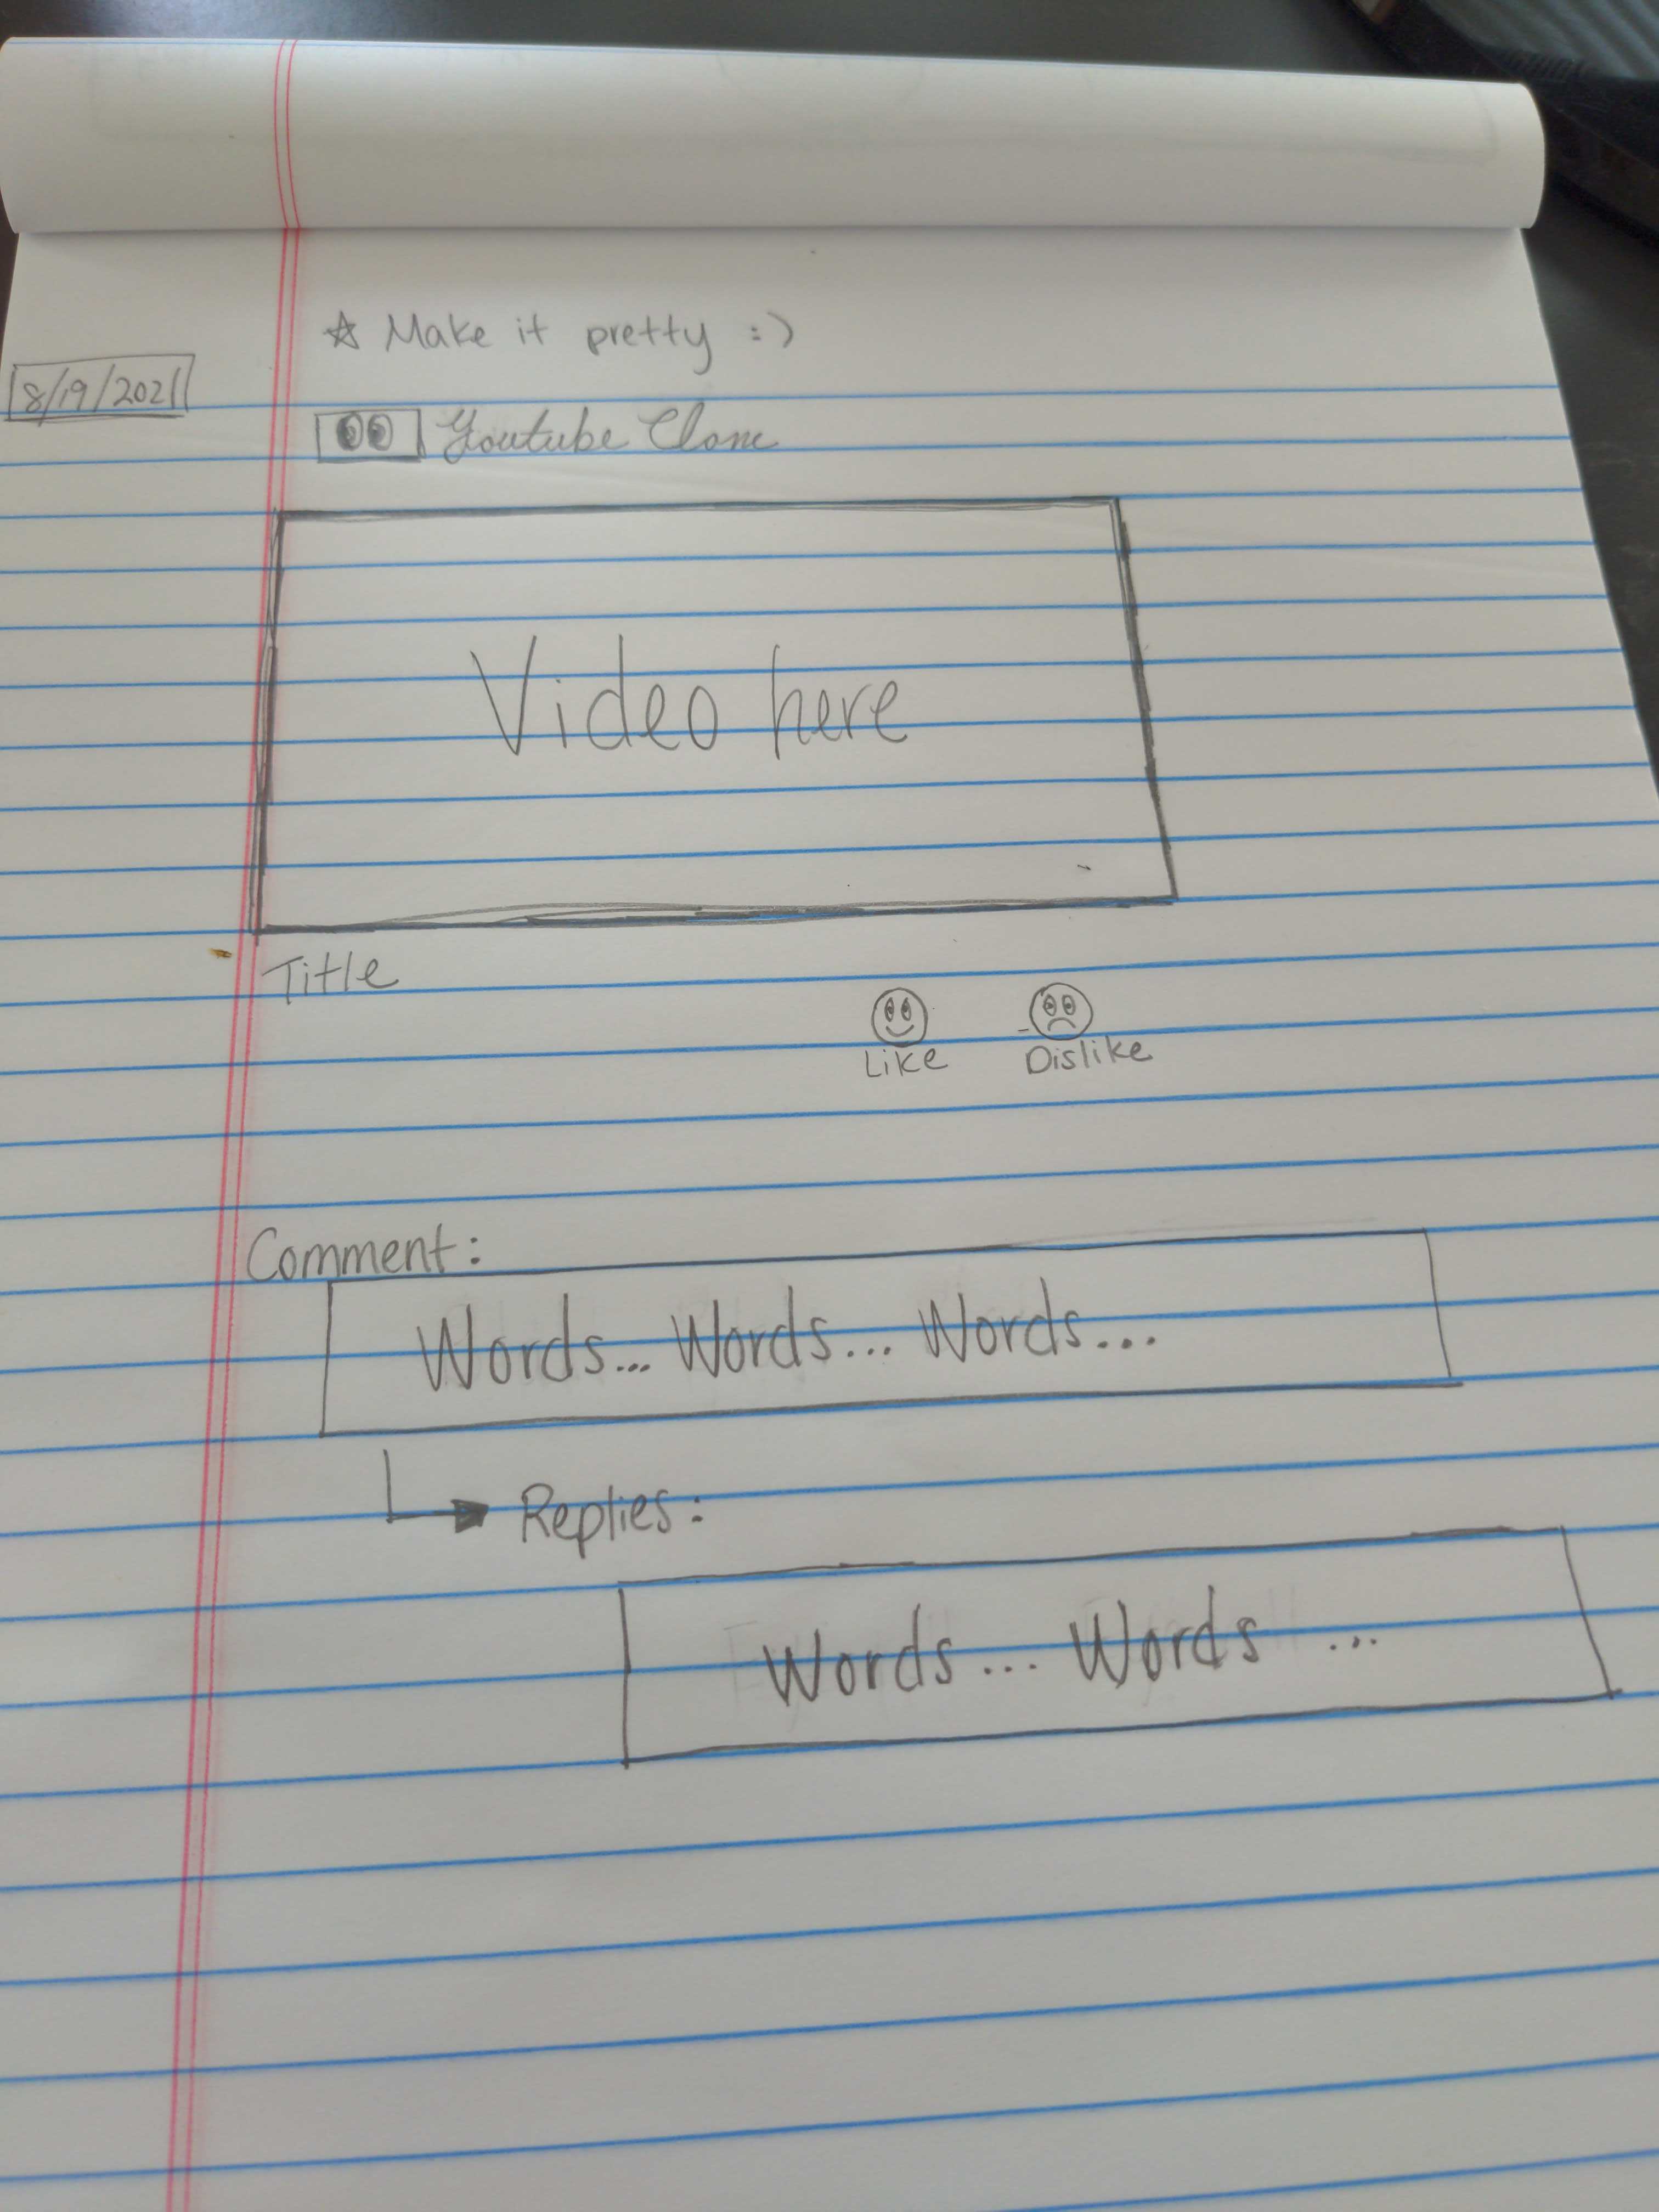 ☆ Make it pretty :)
8/19/2021
Youtube Clone
Video here
Title
Like Dislike
Comment:
Words... Words... Words...
Replies:
Words... Words ...